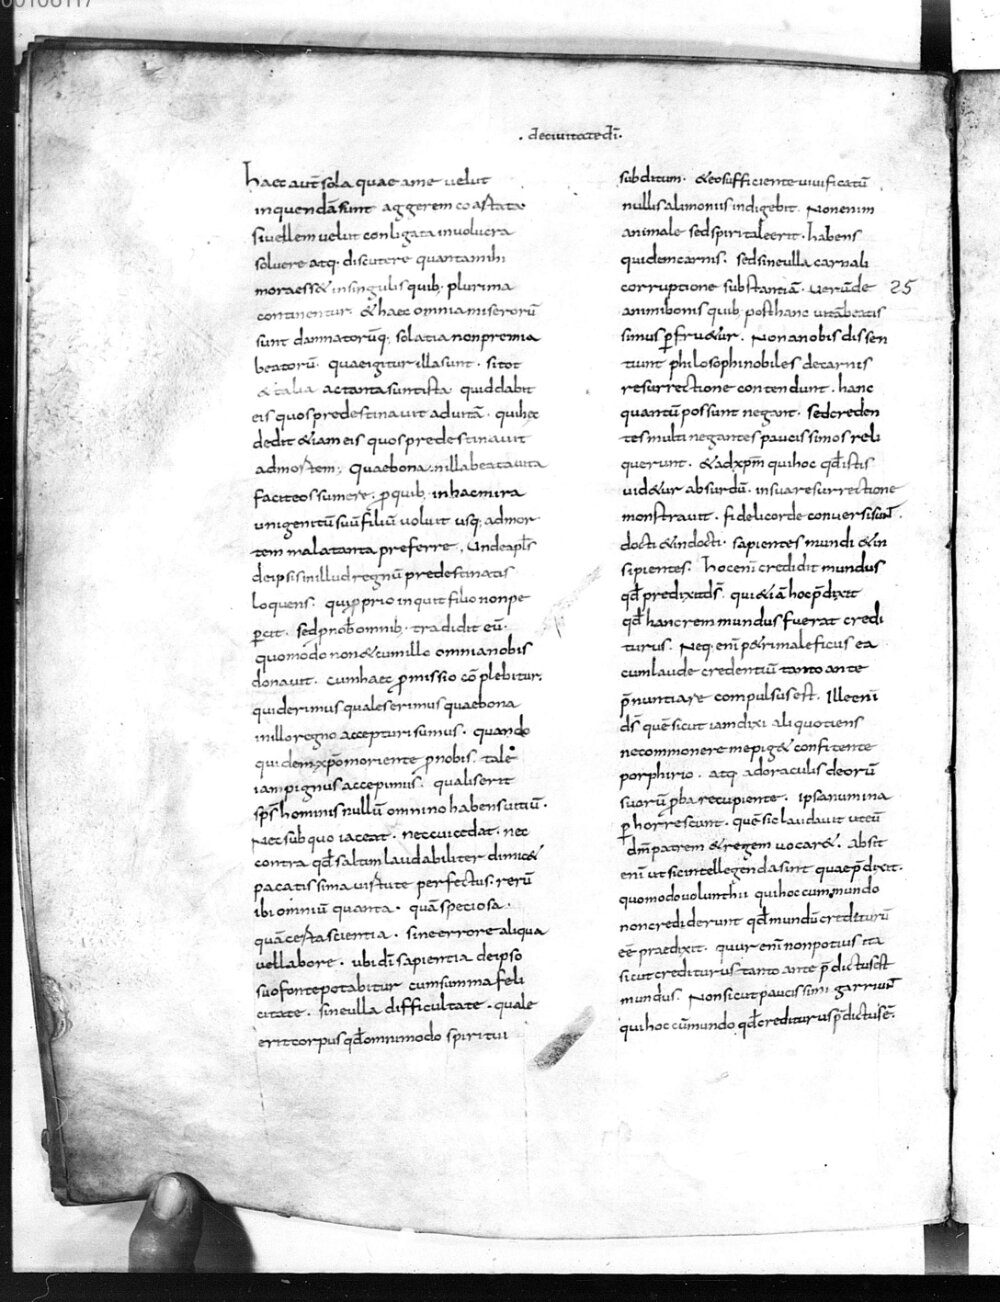 00106117
· deciuitatedi̅ ·
haec aut̅ sola quae ame uelut
inquendā sunt aggerem coastata
siuellem uelut conligata inuolucra
soluere atq; discutere quantamihi
moraess& insingulis quib; plurima
continentur; & haec omnia miserorū
sunt damnatorūq; solatia non premia
beatorū. quaeigitur illasunt. sitot
& talia actanta suntista quiddabit
eis quos predestinauit aduitā. quihęc
dedit &iam eis quos predestinauit
admortem; Quaebona inilla beatauita
faci& eos sumere. ꝓquib; inhacmira
unigenitū suū filiū uoluit usq; admor
tem mala tanta preferre, Undeapl̅s
deipsis inillud regnū predestinatis
loquens. quiꝓprio inquit filio nonpe
ꝑcit. sedpnob̅ omnib; tradidit eū.
quomodo non&cumillo omnianobis
donauit. cumhaec ꝓmissio cōplebitur.
quiderimus qualeserimus quaebona
inilloregno accepturi sumus. quando
quidem xp̅o moriente ꝓnobis. tale
iampignus accepimus. qualiserit
sp̅s hominis nullū omnino habensuitiū.
Nec sub quo iaceat. neccuicedat. nec
contra qd̅ saltim laudabiliter dimic&
pacatissima uirtute perfectus. rerū
ibi omniū quanta. quā speciosa.
quācerta scientia. sine errore aliqua
uellabore. ubi di̅ sapientia deipso
suofonte potabitur cumsumma feli
citate. sineulla difficultate. quale
erit corpus qd̅ omnimodo spiritui
subditum. &eosufficiente uiuificatū
nullis alimoniis indigebit. Nonenim
animale sed spiritale erit. habens
quidem carnis. sedsineulla carnali
corruptione substantiā. Uerūde
25
animibonis quib; posthanc uitā beatis
simus ꝑfru&ur. Non anobis dissen
tiunt philosophi nobiles decarnis
resurrectione contendunt. hanc
quantū possunt negant. sedcreden
tes multi negantes paucissimos reli
querunt. &adxp̅m quihoc qd̅ istis
uid&ur absurdū. insua resurrectione
monstrauit. fideli corde conuersi sunt̅.
docti &indocti. sapientes mundi &in
sipientes. hocenī credidit mundus
qd̅ predixit ds̅. qui&iā hoc p̅dixit
qd̅ hanc rem mundus fuerat credi
turus. Neq; enī p&ri maleficus ea
cumlaude credentiū tanto ante
p̅nuntiare compulsus est. Ille enī
ds̅ quē sicut iam dixi aliquotiens
neccommonere mepig& confitente
porphirio. atq; ad oraculis deorū
suorū ꝓbare cupiente. ipsanumina
ꝑhorrescunt. quē sic laudauit uteū
dm̅ patrem &regem uocar&. absit
enī ut sicintellegenda sint quaep̅dixit.
quomodouolunt hii quihoc cum mundo
noncrediderunt qd̅ mundū crediturū
ee̅ praedixit. quur enī nonpotius ita
sicut crediturus tanto ante p̅dictus est
mundus. Non sicut paucissimi garriunt̅
quihoc cūmundo qd̅ crediturus p̅dictus ē.